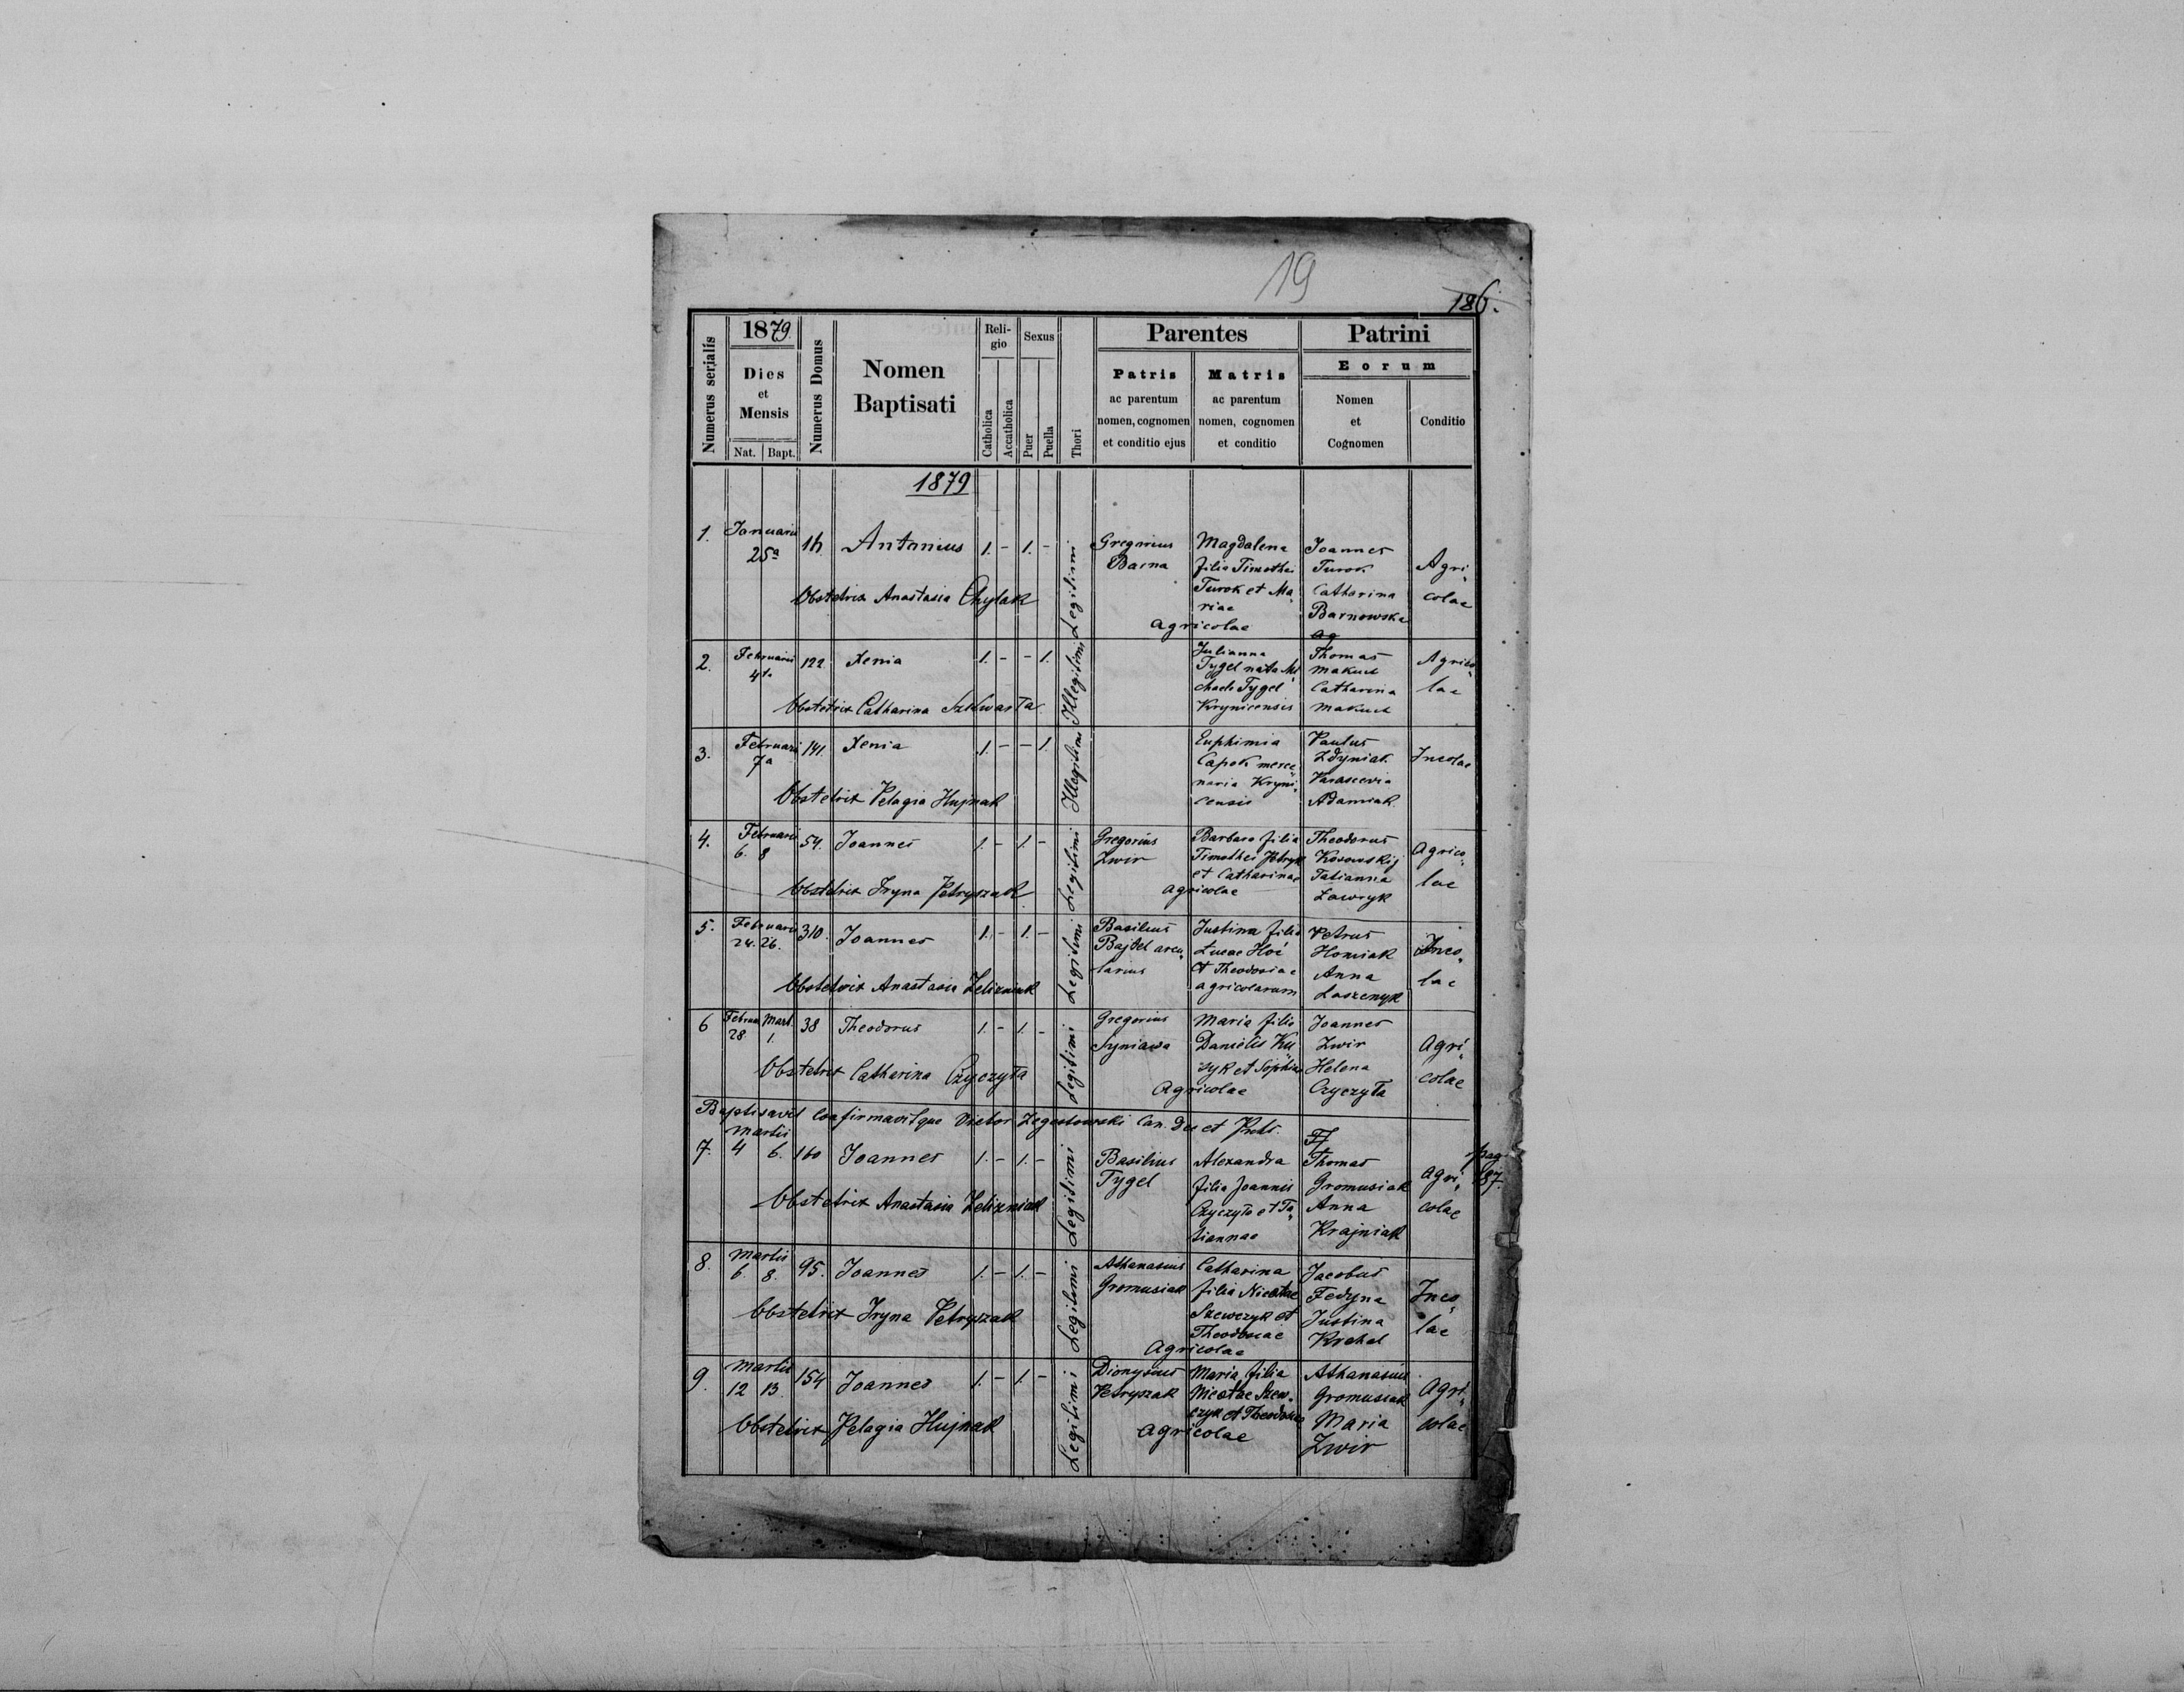 19
186.
Numerus serialis
1879.
Dies
et
Mensis
Nat. Bapt.
Numerus Domus
Nomen
Baptisati
Reli-
gio
Catholica
Accatholica
Sexus
Puer
Puella
Thori
Parentes
Patris
ac parentum
nomen, cognomen
et conditio ejus
Matris
ac parentum
nomen, cognomen
et conditio
Patrini
Eorum
Nomen
et
Cognomen
Conditio
1879
1.
Januarii
25a
Antonius
1. - 1. -
Obstetrix Anastasia Chylak
Legitimi
Gregorius
Barna
Magdalena
filia Timothei
Turok et Ma
riae
Agricolae
Joannes
Turok
Catharina
Barnowska
Ag
Agri
colae
2.
Februarii
4ta
122
Xenia
1. - - 1.
Obstetrix Catharina
Illegitimi
Julianna
Tygel nata Mi
chaeli Tygel
Krynicensis
Thomas
Makuch
Catharina
Makuch
Agrico
lae
3.
Februarii
7a
141.
Xenia
1. - - 1.
Obstetrix Pelagia Hujnak
Illegitimi
Euphimia
Capok merce
naria Kryni
censis
Paulus
Zdyniak
Parascevia
Adamiak
Incolae
4.
Februarii
6. 8
54.
Joannes
1. - 1. -
Obstetrix Iryna Petryszak
Legitimi
Gregorius
Zwir
Barbara filia
Timothei Petryk
et Catharinae
Agricolae
Theodorus
Kosowskij
Tatianna
Lawryk
Agrico
lae
5.
Februarii
24. 26.
310.
Joannes
1. - 1. -
Obstetrix Anastasia Zelizniak
Legitimi
Basilius
Bajdel arcu
larius
Justina filia
Lucae Hoć
et Theodosiae
agricolarum
Petrus
Homiak
Anna
Laszczyk
Inco
lae
6
Februar Mart.
28 1.
38
Theodorus
1. - 1. -
Obstetrix Catharina Czyczyła
Legitimi
Gregorius
Syniawa
Maria filia
Danielis Ku
zyk et Sophiae
Agricolae
Joannes
Zwir
Helena
Czyczyła
Agri
colae
Baptisavit Confirmavitque Victor Zegestowski Can. Dec et Par.
7.
Martii
4 6.
160
Joannes
1. - 1. -
Obstetrix Anastasia Zelizniak
Legitimi
Basilius
Tygel
Alexandra
filia Joannis
Czyczyło et Ta
tiannae
Thomas
Gromusiak
Anna
Krajniak
Agri
colae
pag
187.
8.
Martii
6. 8.
95.
Joannes
1. - 1. -
Obstetrix Iryna Petryszak
Legitimi
Athanasius
Gromusiak
Catharina
filia Nicetae
Szewczyk et
Theodosiae
Agricolae
Jacobus
Fedyna
Justina
Krehel
Inco
lae
9.
Martii
12 13.
154
Joannes
1. - 1. -
Obstetrix Pelagia Hujnak
Legitimi
Dionysius
Petryszak
Maria filia
Nicetae Szew
czyk et Theodosiae
Agricolae
Athanasius
Gromusiak
Maria
Zwir
Agri
colae